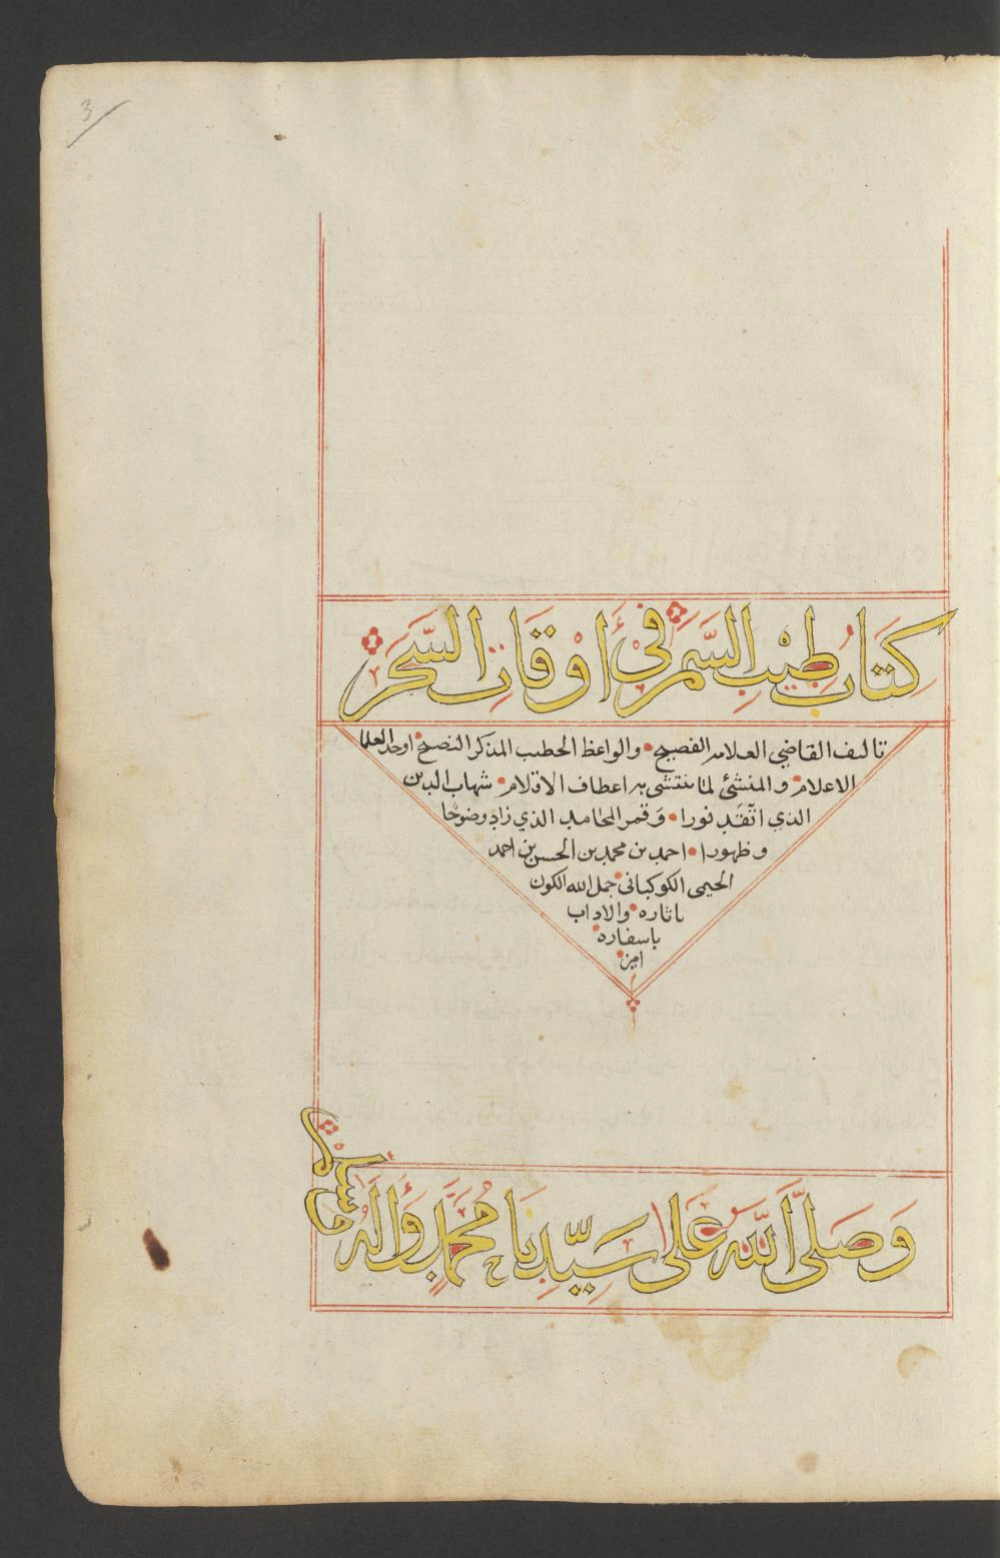 3
كتاب طيب السمر في أوقات السحر
تاليف القاضي العلامه الفصيح والواعظ الخطيب المذكر النصيح اوحد العلما
الاعلام والمنشئ لما ينتشى به اعطاف الاقلام شهاب الدين
الذي اتّقد نورا وقمر المحامد الذي زاد وضوحًا
وظهورا احمد بن محمد بن الحسن بن احمد
الحيمي الكوكباني جمل الله الكون
باثاره والاداب
باسفاره
امين
وَصَلى اللّه عَلى سَيّدِنَا مُحمَّد وَالهُ وسلم